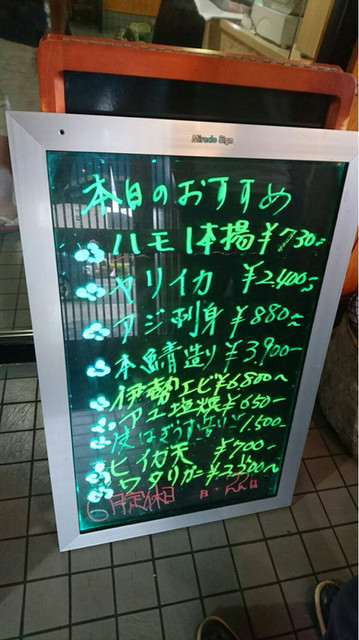 Mirade Sign
本日のおすすめ
ハモ1本揚¥730~
ヤリイカ ¥2.400~
アジ刺身 ¥880~
本鯖造り¥3.900~
伊勢エビ¥6800~
アユ塩焼¥650~
皮はぎうす造り 1.500~
ヒイカ天 ¥700~
ワタリガニ
6月定休日 日